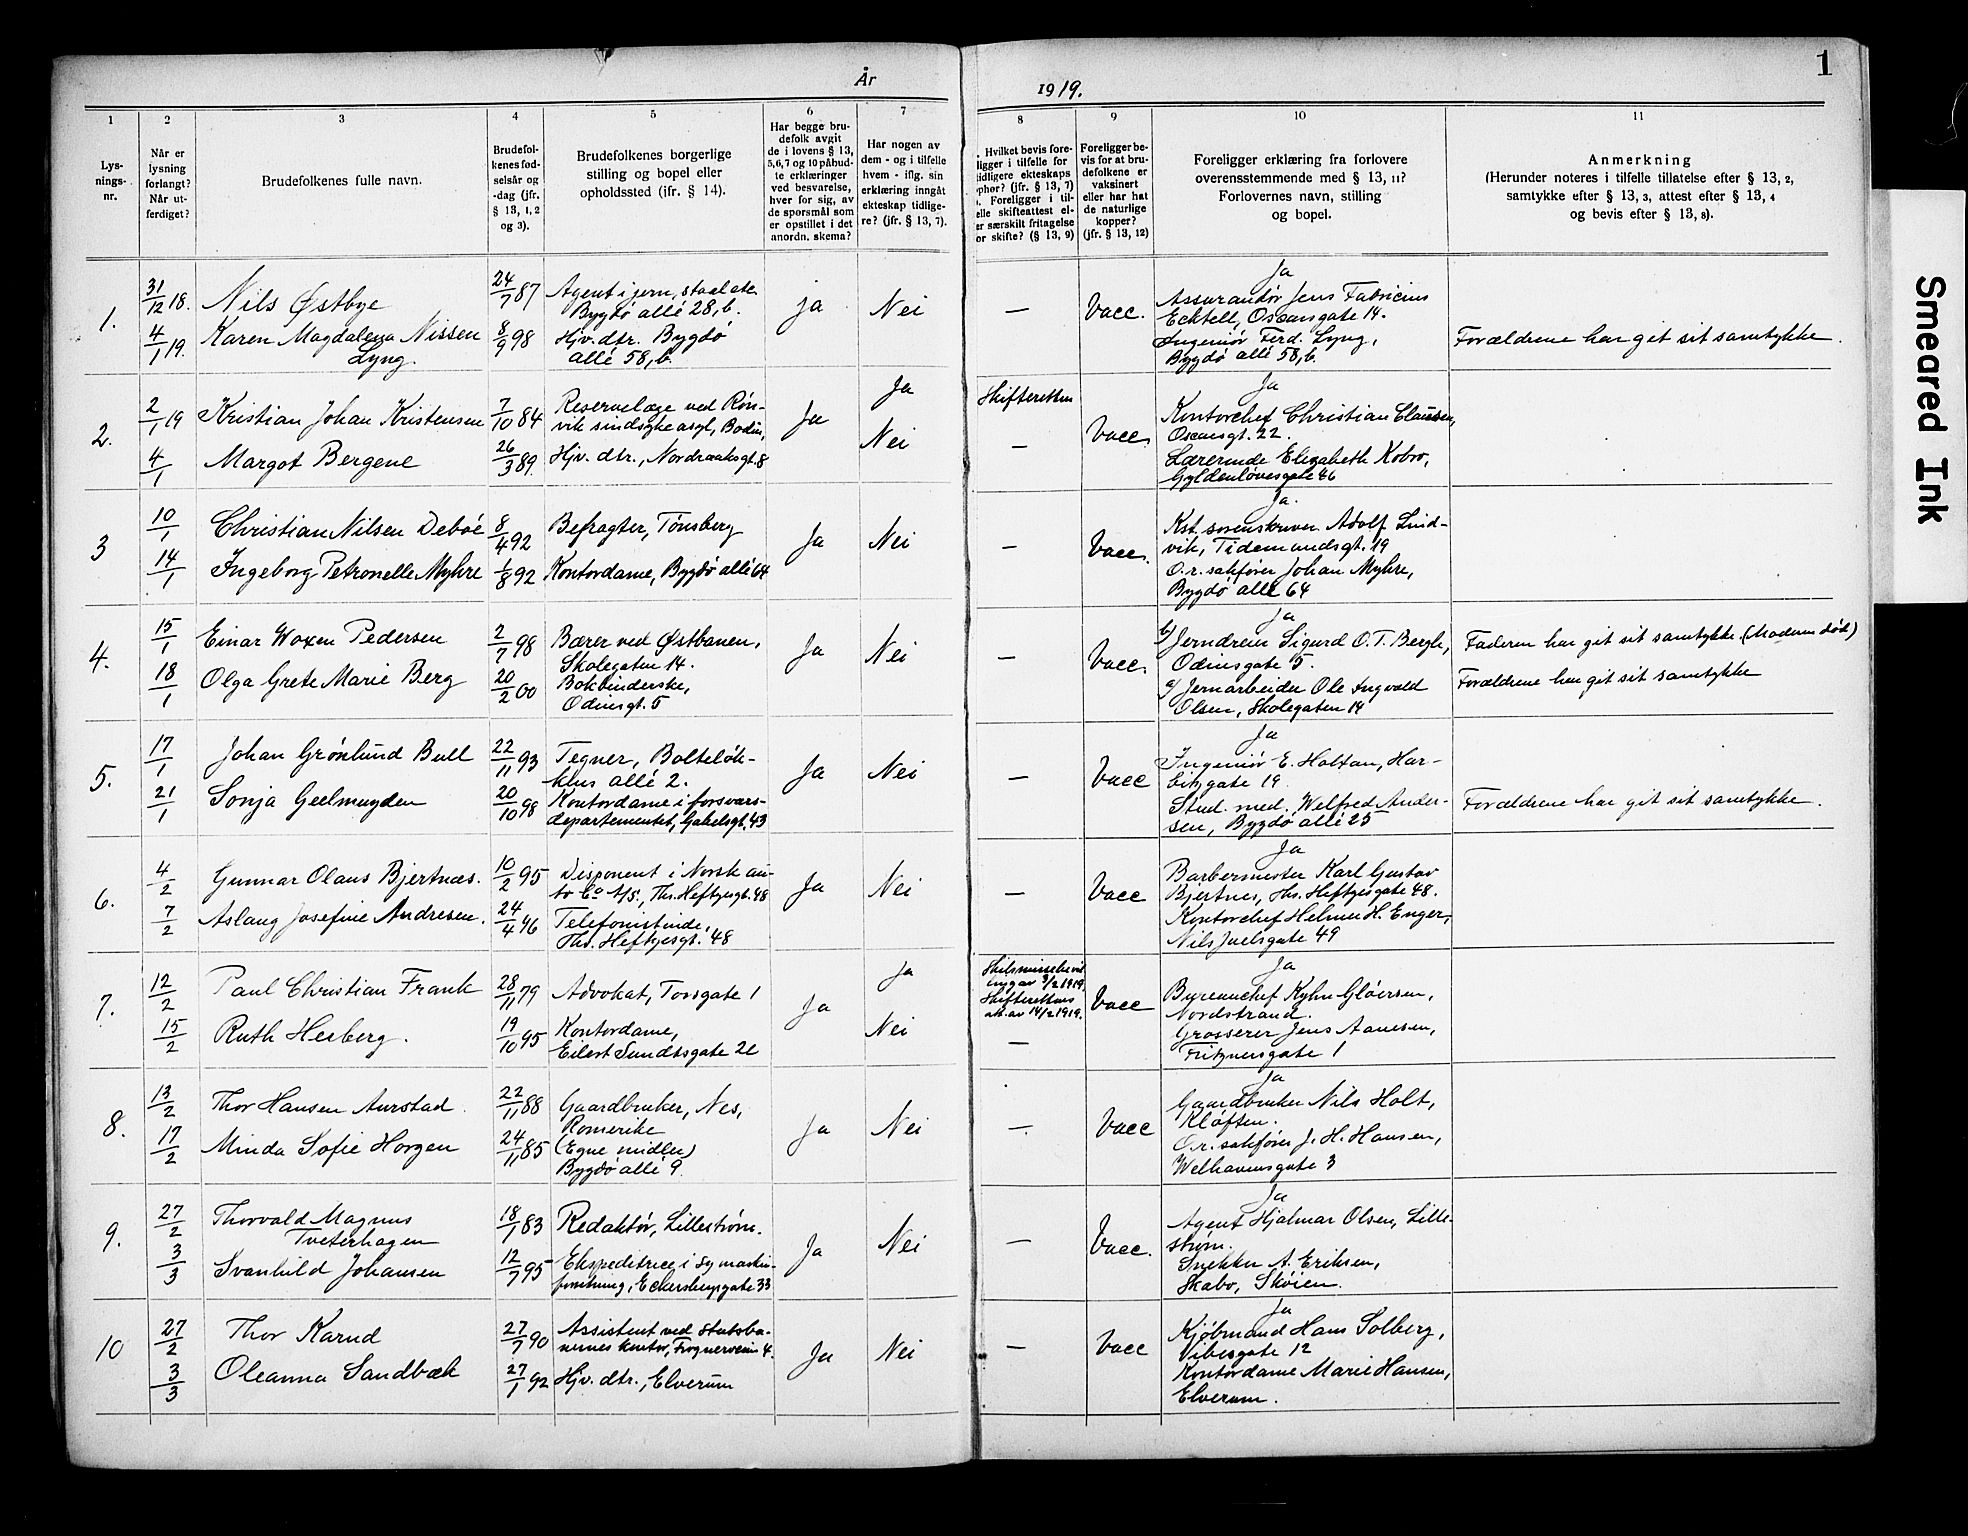 År
1919.
1
1
2
3
4
5
6
7
8
9
10
11
Lys-
nings-
nr.
Når er
lysning
forlangt?
Når ut-
ferdiget?
Brudefolkenes fulle navn.
Brudefol-
kenes fød-
selsår og
-dag (jfr.
§ 13, 1, 2
og 3).
Brudefolkenes borgerlige
stilling og bopel eller
opholdssted (ifr. § 14).
Har begge bru-
defolk avgit
de i lovens § 13,
5,6,7 og 10 påbud-
te erklæringer
ved besvarelse,
hver for sig, av
de spørsmål som
er opstillet i det
anordn. skema?
Har nogen av
dem - og i tilfelle
hvem - iflg. sin
erklæring inngått
ekteskap tidlige-
re? (jfr. § 13, 7).
Hvilket bevis fore-
ligger i tilfelle for
tidligere ekteskaps
ophør? (jfr. § 13, 7)
Foreligger i til-
elle skifteattest el-
er særskilt fritagelse
or skifte? (§ 13, 9)
Foreligger be-
vis for at bru-
defolkene er
vaksinert
eller har hat
de naturlige
kopper?
(jfr. § 13, 12)
Foreligger erklæring fra forlovere
overensstemmende med § 13, 11?
Forlovernes navn, stilling
og bopel.
Anmerkning
(Herunder noteres i tilfelle tillatelse efter § 13, 2,
samtykke efter § 13, 3, attest efter § 13, 4
og bevis efter § 13, 8).
1.
31/12 18.
4/1 19.
Nils Østbye
Karen Magdalena Nissen
Lyng.
24/7 87
8/9 98
Agent i jern, staal etc.
Bygdø allé 28, b.
Hjv. dtr. Bygdø
allé 58, b.
ja
Nei
—
Vacc.
Ja
Assurandør Jens Fabricius
Ecktell, Oscarsgate 14.
Ingeniør Ferd. Lyng,
Bygdø allé 58, b.
Forældrene har git sit samtykke.
2.
2/1 19
4/1
Kristian Johan Kristensen
Margot Bergene
7/10 84
26/3 89
Reservelæge ved Røn-
vik sindsyke asyl, Bodin,
Hjv. dtr., Nordraaksgt. 8
Ja
Ja
Nei
Skifteretten
—
Vacc.
Ja
Kontorchef Christian Claussen,
Oscarsgt. 22.
Lærerinde Elizabeth Kobro,
Gyldenløvesgate 46
3
10/1
14/1
Christian Nilsen Deboe
Ingeborg Petronelle Myhre
8/4 92
1/8 92
Befragter, Tønsberg
Kontordame, Bygdø allé 64
Ja
Nei
—
Vacc.
Ja.
Kst. sorenskriver Adolf Lind-
vik, Tidemandsgt. 19
O.r. sakfører Johan Myhre,
Bygdø allé 64
4.
15/1
18/1
Einar Woxen Pedersen
Olga Grete Marie Berg
2/7 98
20/2 00
Bærer ved Østbanen,
Skolegaten 14.
Bokbinderske,
Odinsgt. 5
Ja
Nei
—
Vacc.
Ja
b/ Jerndreier Sigurd O. T. Bergh,
Odinsgate 5.
a/ Jernarbeider Ole Ingvald
Olsen, Skolegaten 14
Faderen har git sit samtykke. (Moderen død)
Forældrene har git sit samtykke
5.
17/1
21/1
Johan Grønlund Bull
Sonja Geelmuyden
22/11 93
20/10 98
Tegner, Bolteløk-
kens allé 2.
Kontordame i forsvars-
departementet, Gabelsgt. 43
Ja
Nei
—
Vacc
Ja
Ingeniør E. Holtan, Har-
bitzgate 19
Stud. med. Welfred Ander-
sen, Bygdø allé 25
Forældrene har git sit samtykke.
6.
4/2
7/2
Gunnar Olaus Bjertnæs.
Aslaug Josefine Andresen.
10/2 95
24/4 96
Disponent i Norsk au-
to Co A/S, Ths. Heftyesgt. 48
Telefonistinde,
Ths. Heftyesgt. 48
Ja
Nei
—
Vacc
Ja
Barbermester Karl Gustav
Bjertnes, Ths. Heftyesgate 48.
Kontorchef Helmer H. Enger,
Nils Juelsgate 49
7.
12/2
15/2
Paul Christian Frank
Ruth Herberg.
28/11 79
19/10 95
Advokat, Torsgate 1
Kontordame,
Eilert Sundtsgate 21
Ja
Ja
Nei
Skilsmissebevil
ling av 3/2 1919.
Skifterettens
att. av 14/2 1919.
—
Vacc
Ja
Byreauchef Kyhn Gløersen,
Nordstrand.
Grosserer Jens Aanesen,
Fritznersgate 1
8.
13/2
17/2
Thor Hansen Aurstad.
Minda Sofie Horgen
22/11 88
24/11 85
Gaardbruker, Nes,
Romerike
(Egne midler)
Bygdø allé 9.
Ja
Nei
—
Vacc
Ja
Gaardbruker Nils Holt,
Kløften.
O.r. sakfører J. H. Hansen,
Welhavensgate 3
9.
27/2
3/3
Thorvald Magnus
Tveterhagen
Svanhild Johansen
18/1 83
12/7 95
Redaktør, Lillestrøm.
Ekspeditrice i symaskin-
forretning, Eckersbergsgate 33
Ja
Nei
—
Vacc.
Ja
Agent Hjalmar Olsen, Lille-
strøm.
Snekker A. Eriksen,
Skabo, Skøien.
10
27/2
3/3
Thor Karud
Oleanna Sandbæk
27/7 90
27/1 92
Assistent ved Statsba-
nernes kontor, Frognerveien 4.
Hjv. dtr., Elverum
Ja
Nei
—
Vacc
Ja
Kjøbmand Hans Solberg,
Vibesgate 12
Kontordame Marie Hansen,
Elverum.
Smeared Ink